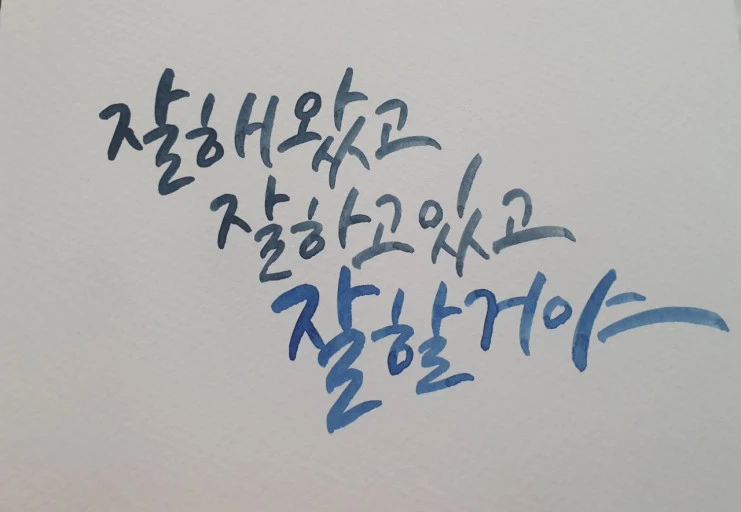 잘해왔고
잘하고있고
잘할거야